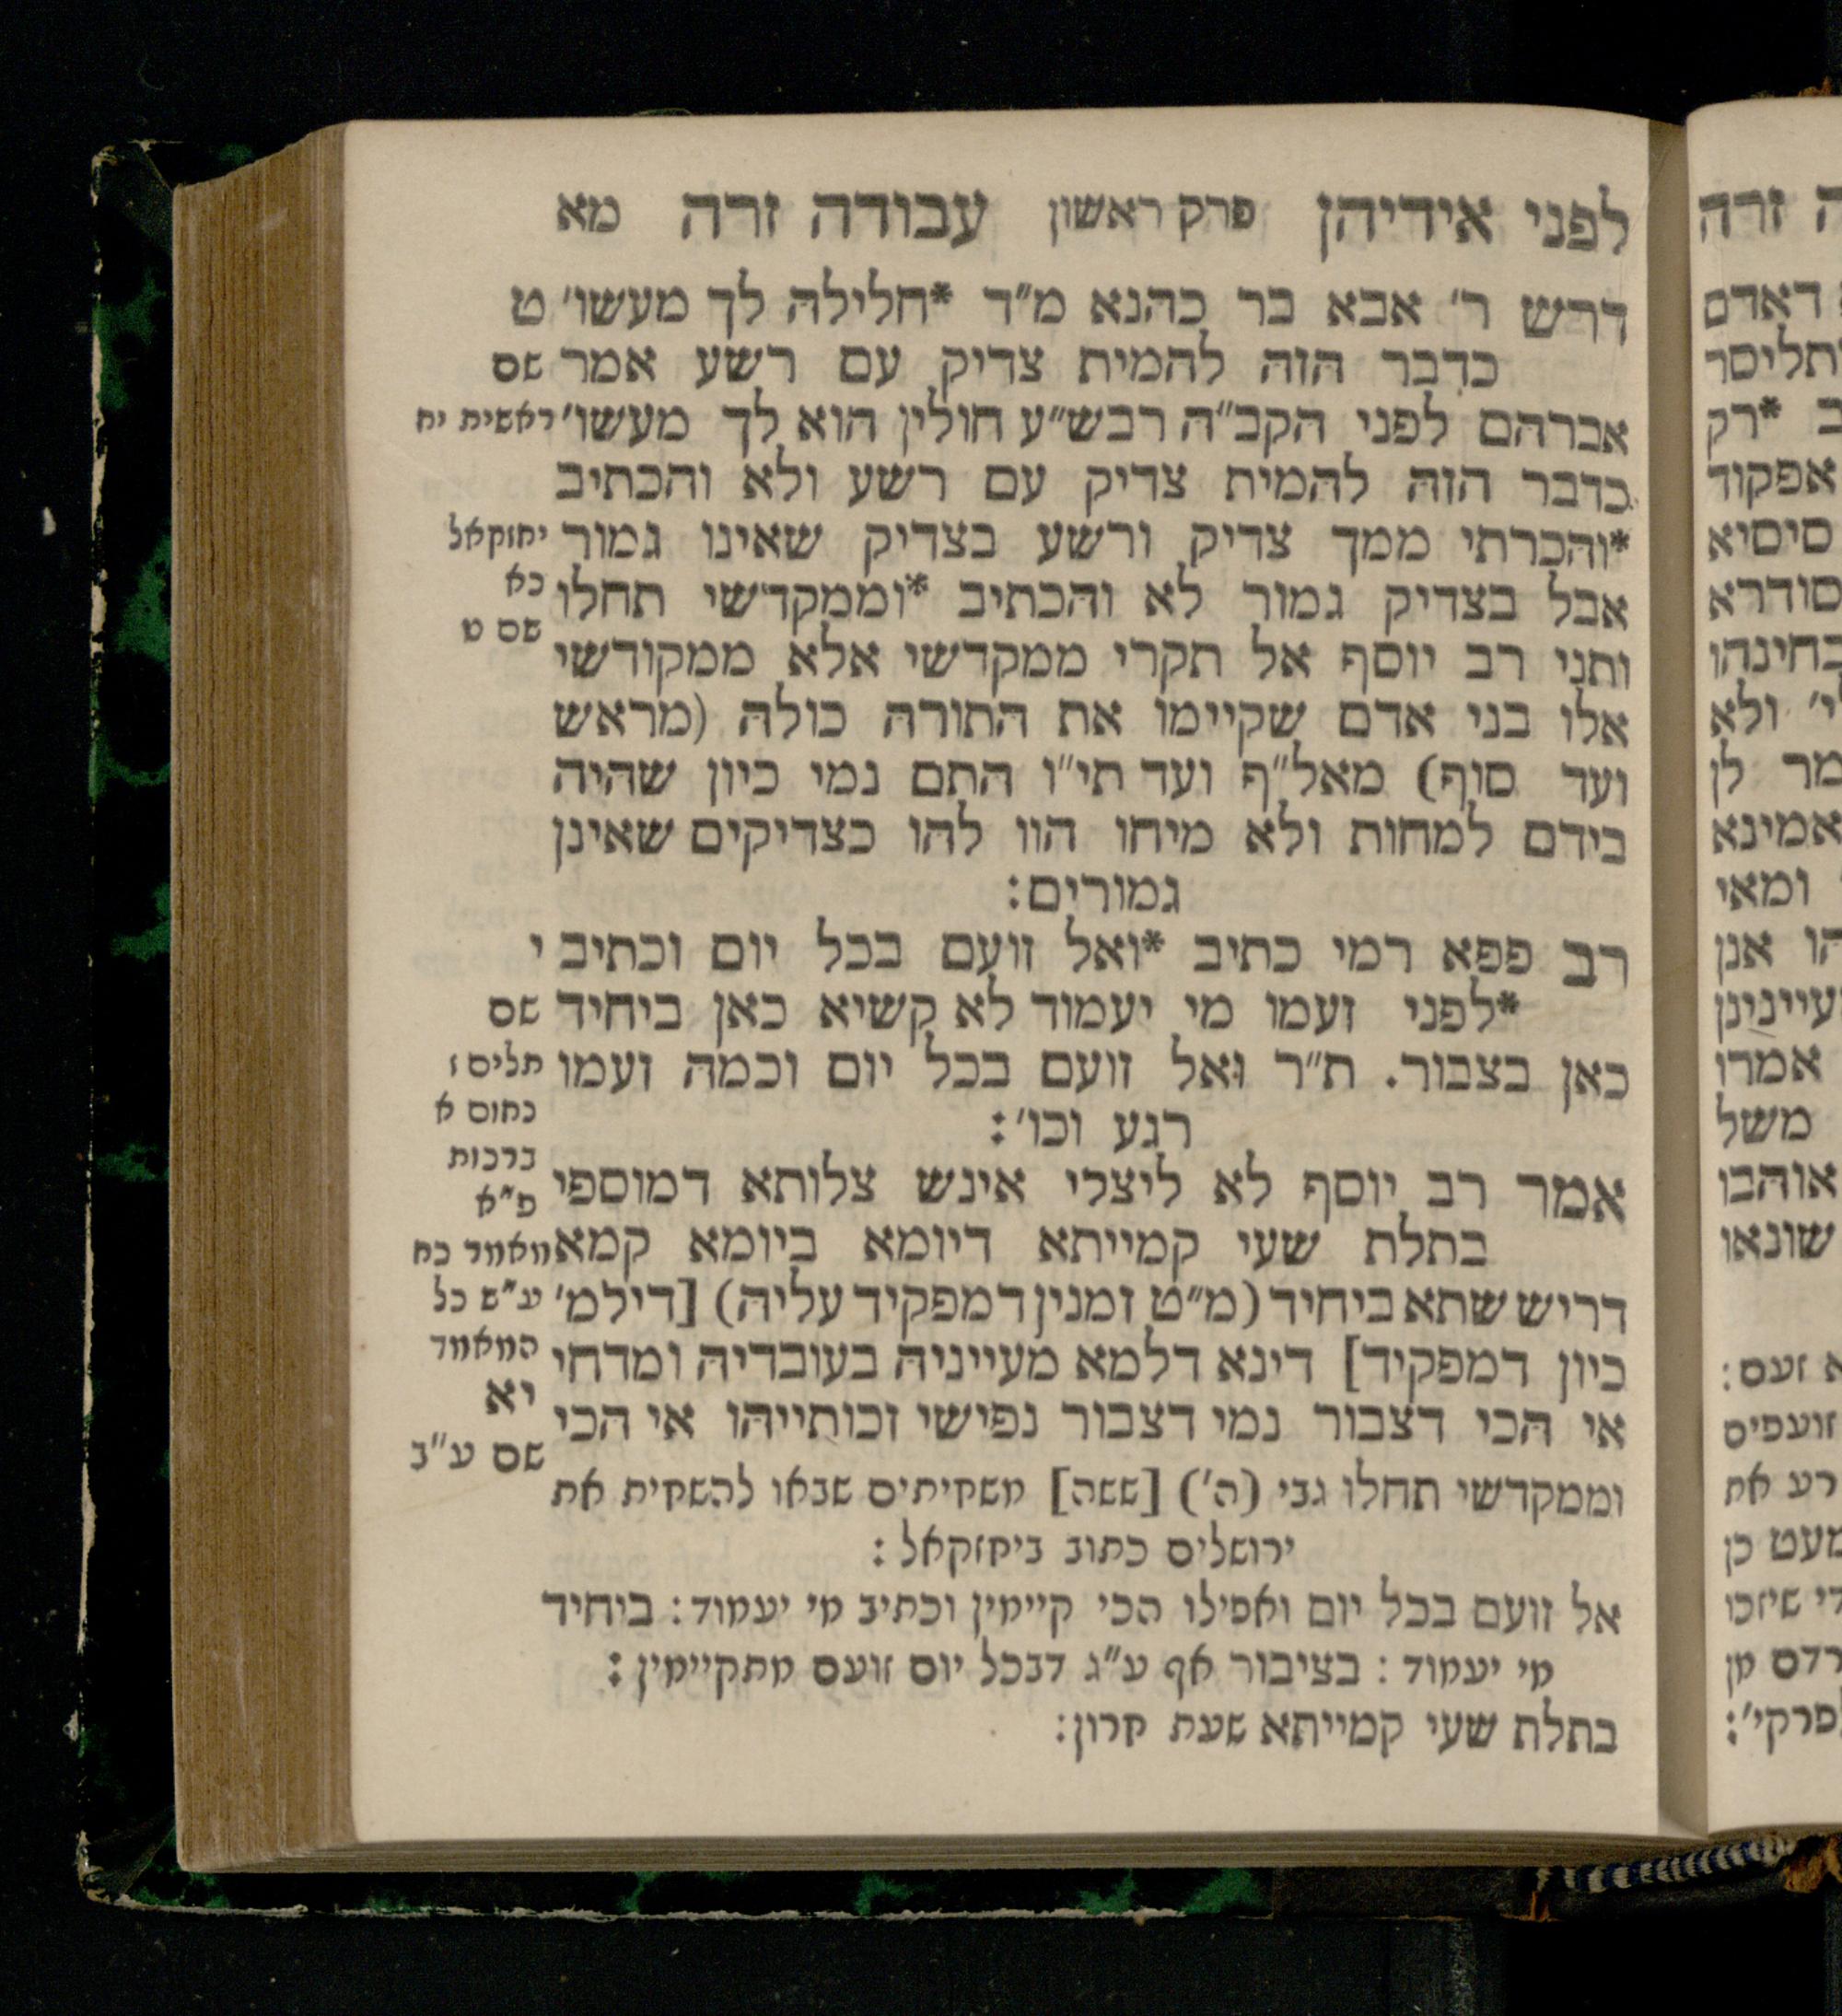 לפני אידיהן פרק ראשון עבודה זרה מא
דרש ר׳ אבא בר כהנא מ״ד *חלילה לך מעשו׳
כדבר הזה להמית צדיק עם רשע אמר
אברהם לפני הקב״ה רבש״ע חולין הוא לך מעשו׳
כדבר הזה להמית צדיק עם רשע ולא והכתיב
*והכרתי ממך צדיק ורשע בצדיק שאינו גמור
אבל בצדיק גמור לא והכתיב *וממקדשי תחלו
ותני רב יוסף אל תקרי ממקדשי אלא ממקודשי
אלו בני אדם שקיימו את התורה כולה (מראש
ועד סוף) מאל״ף ועד תי״ו התם נמי כיון שהיה
בידם למחות ולא מיחו הוו להו כצדיקים שאינן
גמורים:
רב פפא רמי כתיב *ואל זועם בכל יום וכתיב
*לפני זעמו מי יעמוד לא קשיא כאן ביחיד
כאן בצבור. ת״ר ואל זועם בכל יום וכמה זעמו
רגע וכו׳:
אמר רב יוסף לא ליצלי אינש צלותא דמוספי
בתלת שעי קמייתא דיומא ביומא קמא
דריש שתא ביחיד (מ״ט זמנין דמפקיד עליה) [דילמ׳
כיון דמפקיד] דינא דלמא מעייניה בעובדיה ומדחי
אי הכי דצבור נמי דצבור נפישי זכותייהו אי הכי
וממקדשי תחלו גבי (ה׳) [ששה] משחיתים שבאו להשחית את
ירושלים כתוב ביחזקאל:
אל זועם בכל יום ואפילו הכי קיימין וכתיב מי יעמוד: ביחיד
מי יעמוד: בציבור אף ע״ג דבכל יום זועם מתקיימין:
בתלת שעי קמייתא שעת חרון:
ט
שם
ראשית יח
יחזקאל
כא
שם ט
י
שם
תלים ז
נחום א
ברכות
פ״א
מאמר כח
ע״ש כל
המאמר
יא
שם ע״ב
ה זרה
דאדם
ב *רק
אפקוד
סיסיא
סודרא
י׳ ולא
מר לן
אמינא
ומאי
הו אנן
אמרו
משל
אוהבו
שונאו
א זעם:
זועפים
רע את